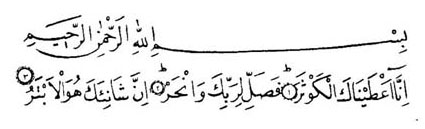 بِسْمِ اللهِ الرَّحْمٰنِ الرَّحِيْمِ
اِنَّا اَعْطَيْنَاكَ الْكَوْثَرَ ۝ فَصَلِّ لِرَبِّكَ وَانْحَرْ ۝ اِنَّ شَانِئَكَ هُوَ الْاَبْتَرُ ۝